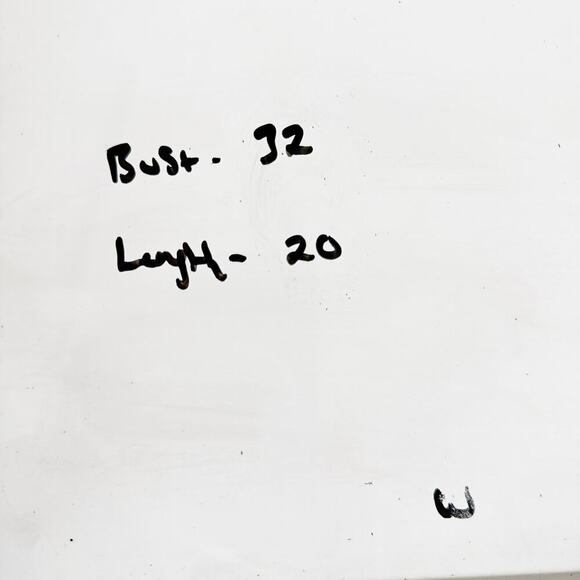 Bust - 32
Length - 20
W